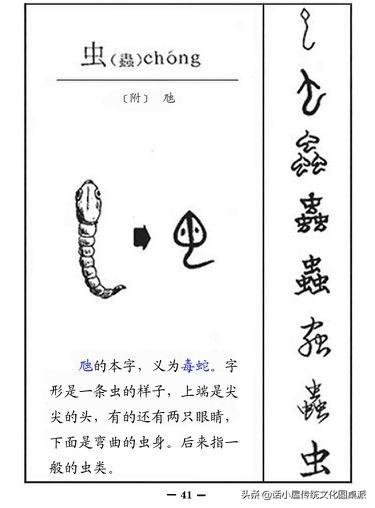 虫(蟲)chóng
〔附〕 虺
虺的本字，义为毒蛇。字
形是一条虫的样子，上端是尖
尖的头，有的还有两只眼睛，
下面是弯曲的虫身。后来指一
般的虫类。
— 41 —
蟲
蟲
蟲
蟲
虫
头条 @诺小屋传统文化图桌派